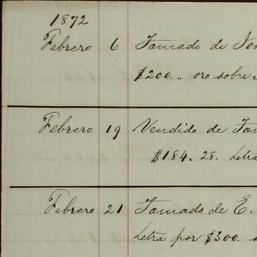 1872
Febrero 6 Tomado de
$200.. oro sobre
Febrero 19 Vendido de
$184.28. Letra
Febrero 21 Tomado de E.
Letra por $300.